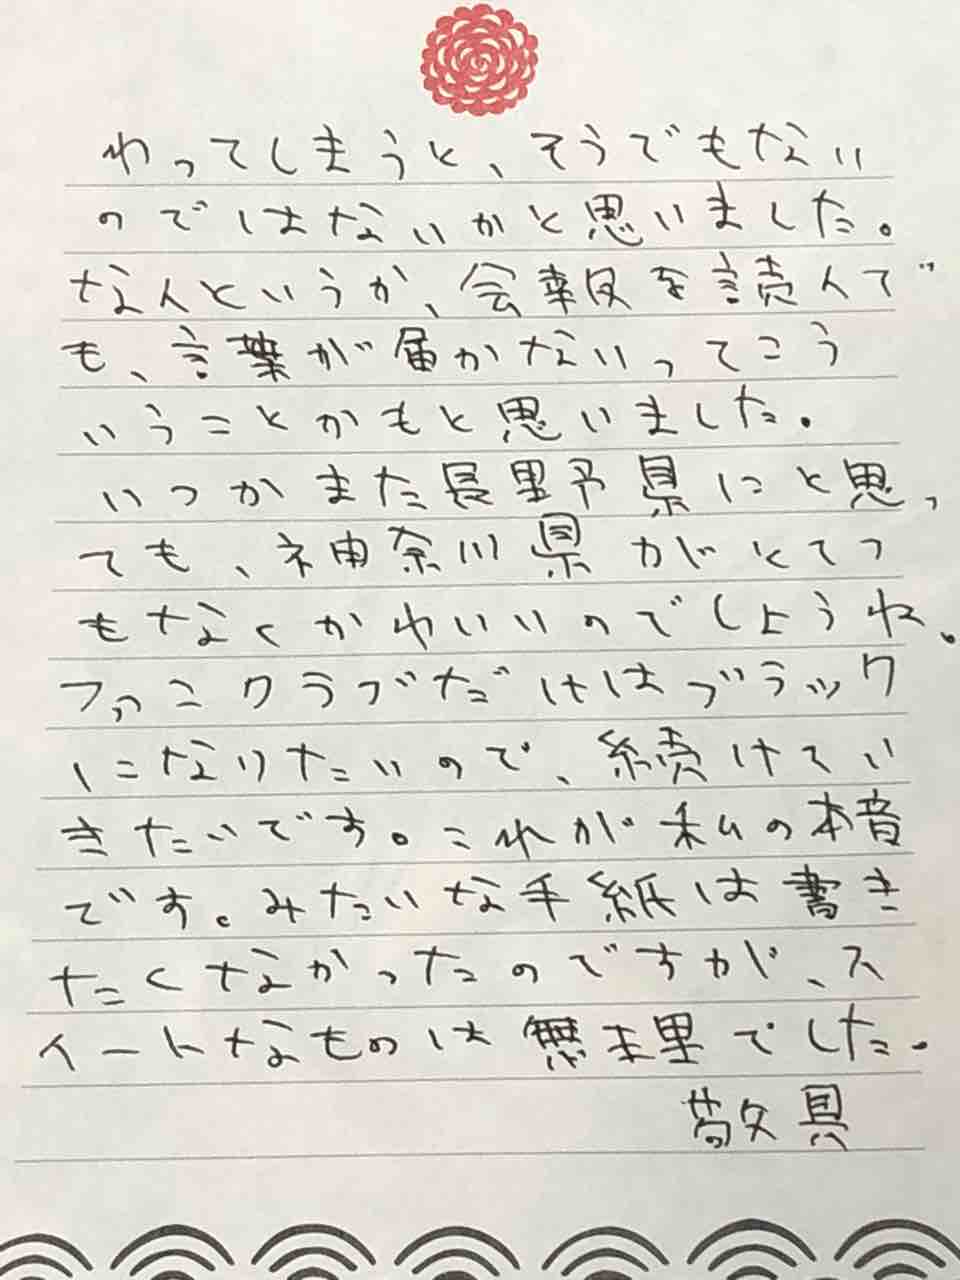 わってしまうと、そうでもない
のではないかと思いました。
なんというか、会報を読んで
も、言葉が届かないってこう
いうことかもと思いました。
いつかまた長野県にと思っ
ても、神奈川県がとてつ
もなくかわいいのでしょうね。
ファンクラブだけはブラック
になりたいので、続けてい
きたいです。これが私の本音
です。みたいな手紙は書き
たくなかったのですが、ス
イートなものは無理でした。
敬具